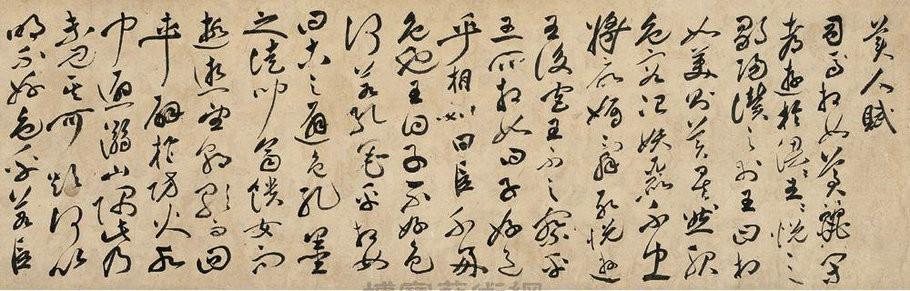 美人賦
司馬相如美麗閑
都遊於梁王〻悅之
鄒陽譖之於王曰相
如美則美矣然服
色容冶妖麗不忠
將欲媚辭取悅遊
王後宮王不之察乎
王問相如曰子好色
乎相如曰臣不好
色也王曰子不好色
何若孔墨乎相如
曰古之避色孔墨
之徒聞齊饋女而
遐逝望朝歌而回
車譬於防火水
中避溺山隅此乃
未見其可欲何以
明不好色乎若臣
博寶藝術網